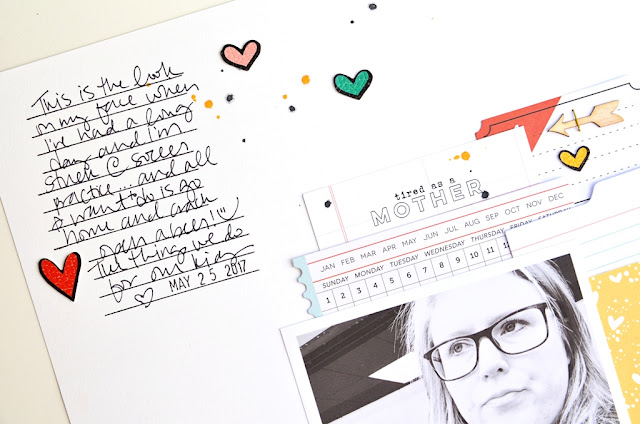 This is the look
on my face when
I've had a long
day and I'm
stuck @ soccer
practice... and all
I want to do is go
home and crash
The things we do
for our kids
MAY 25 2017
tired as a
MOTHER
JAN FEB MAR APR MAY JUN JUL AUG SEP OCT NOV DEC
SUNDAY MONDAY TUESDAY WEDNESDAY THURSDAY FRIDAY
1 2 3 4 5 6 7 8 9 10 11